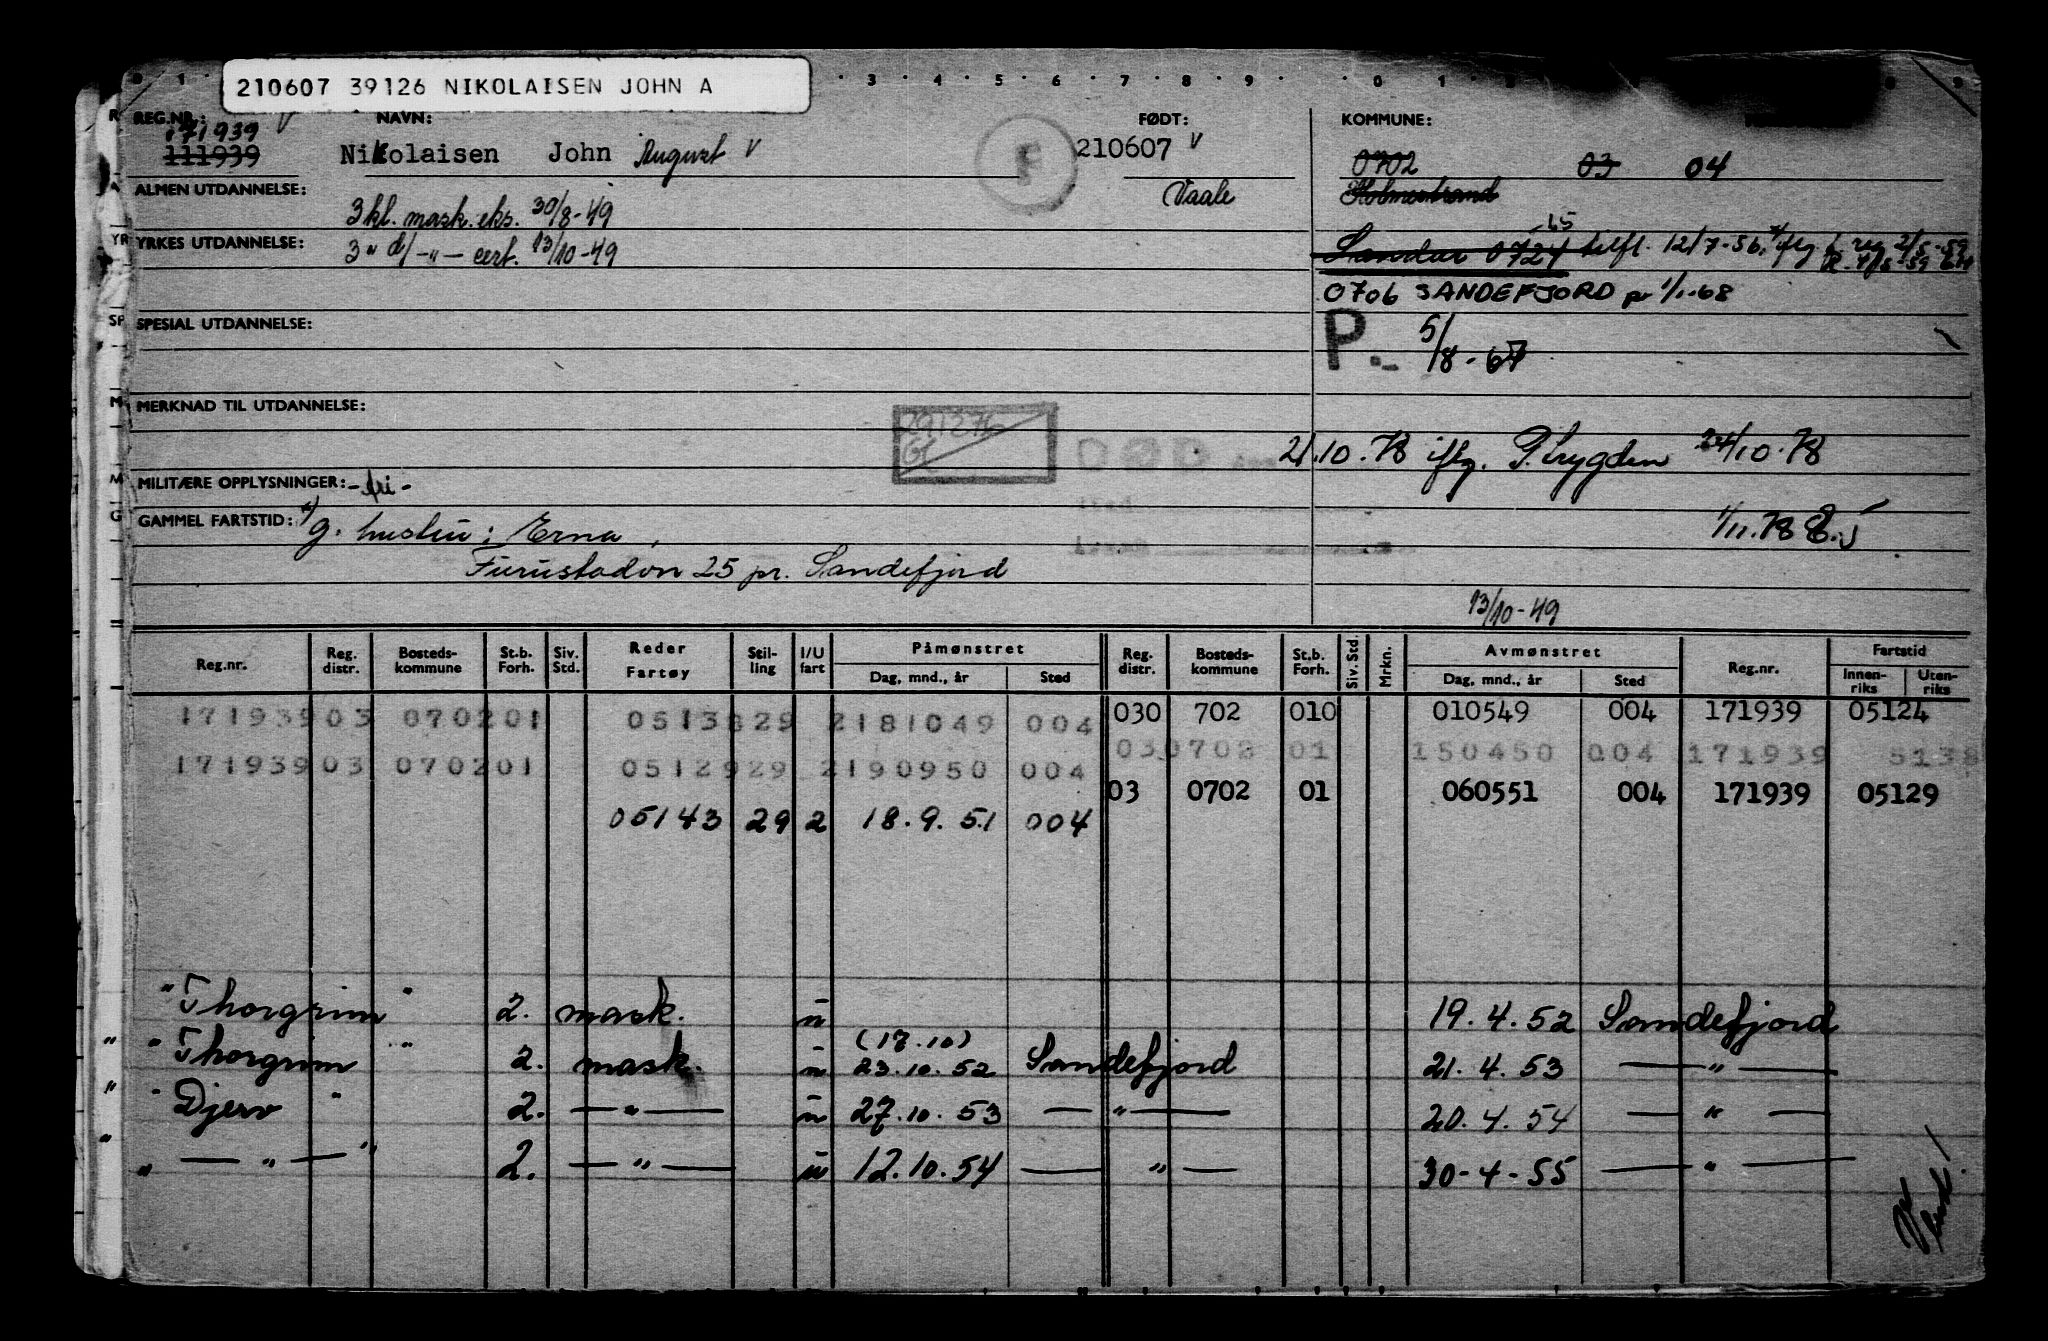 210607 39126 NIKOLAISEN JOHN A
REG.NR.: NAVN: FØDT: KOMMUNE:
171939
111939 Nikolaisen John August V 210607 V 0702 03 04
Vaale Holmestrand
ALMEN UTDANNELSE:
3 kl. mask. eks. 30/8-49
YRKES UTDANNELSE:
3 " d/ -"- cert. 13/10-49
-65
Sandar 0724 tilfl. 12/7-56.
0706 SANDEFJORD pr 1/1-68
SPESIAL UTDANNELSE:
P. 5/8-67
MERKNAD TIL UTDANNELSE:
291276
DØD 21.10.78 iflg. P.trygden 24/10.78
MILITÆRE OPPLYSNINGER: -fri-
GAMMEL FARTSTID: g. hustru: Erna,
1/11.78
Furustadvn 25 pr. Sandefjord
13/10-49
Reg.nr. Reg. distr. Bosteds-kommune St.b. Forh. Siv. Std. Reder Fartøy Stil-ling I/U fart Påmønstret Dag, mnd., år Sted Reg. distr. Bosteds-kommune St.b. Forh. Siv. Std. Mrkn. Avmønstret Dag, mnd., år Sted Reg.nr. Fartstid Innen-riks Uten-riks
171939 03 0702 01 05138 29 2 181049 004 030 702 010 010549 004 171939 05124
030702 01 150450 004 171939 5138
171939 03 0702 01 05129 29 2 190950 004 03 0702 01 060551 004 171939 05129
05143 29 2 18.9.51 004
"Thorgrim" 2. mask. u 19.4.52 Sandefjord
(17.10)
" "Thorgrim" 2. mask. u 23.10.52 Sandefjord 21.4.53 — " —
" "Djerv" 2. — " — u 27.10.53 — " — 20.4.54 — " —
" " — " — " 2. — " — u 12.10.54 — " — 30-4-55 — " —